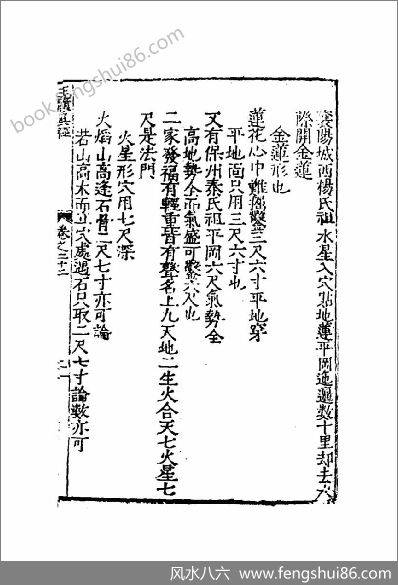 襄陽城西楊氏祖水星入穴㸃地蓮平岡迤邐數十里却去六
際開金蓮
金蓮形也
蓮花心中難㸔鑿三尺六寸平地穿
平地面只用三尺六寸也
又有保州秦氏祖平岡六尺氣勢全
高地勢全而氣盛可鑿六尺也
二家發福有輕重皆有聲名上九天地二生火合天七火星七
尺是法門
火星形穴用七尺深
火熖山高逢石骨二尺七寸亦可論
若山高木而立穴處遇石只取二尺七寸論數亦可
卷之三十二
book.fengshui86.com
风水八六 www.fengshui86.com